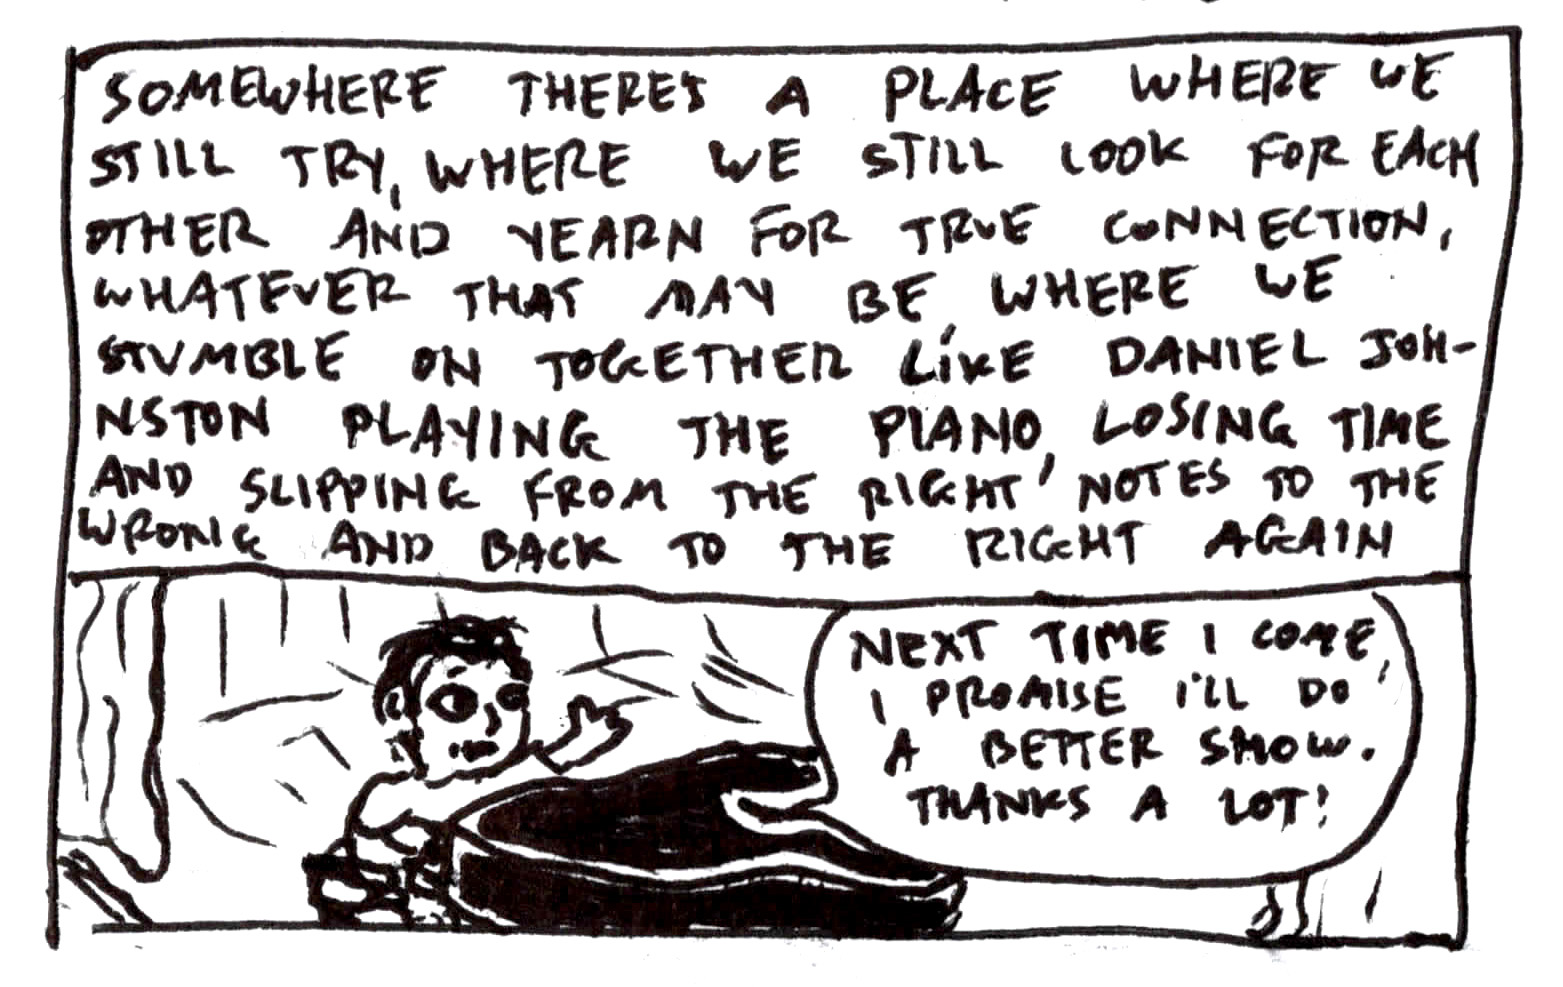 SOMEWHERE THERE'S A PLACE WHERE WE
STILL TRY, WHERE WE STILL LOOK FOR EACH
OTHER AND YEARN FOR TRUE CONNECTION,
WHATEVER THAT MAY BE, WHERE WE
STUMBLE ON TOGETHER LIKE DANIEL JOH-
NSTON PLAYING THE PIANO, LOSING TIME
AND SLIPPING FROM THE RIGHT NOTES TO THE
WRONG AND BACK TO THE RIGHT AGAIN
NEXT TIME I COME,
I PROMISE I'LL DO
A BETTER SHOW.
THANKS A LOT!